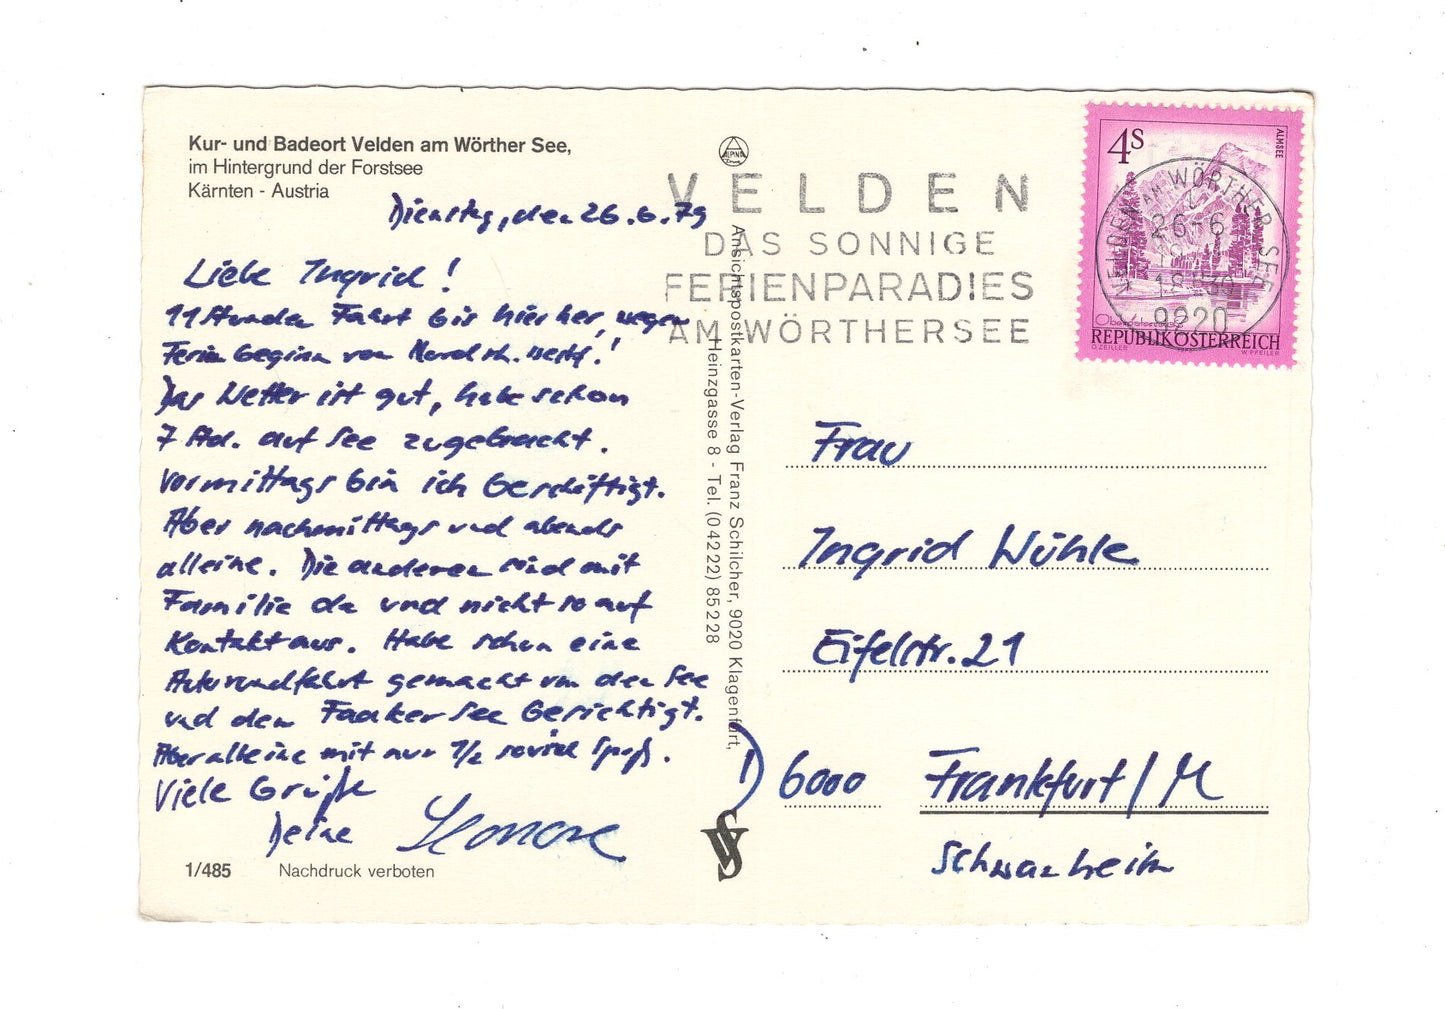 Kur- und Badeort Velden am Wörther See,
im Hintergrund der Forstsee
Kärnten - Austria
Dienstag, den 26.6.79
Liebe Ingrid!
11 Stunden Fahrt bis hierher, wegen
Ferienbeginn von Nordrh. Westf.!
Das Wetter ist gut, habe schon
7 Std. auf See zugebracht.
Vormittags bin ich beschäftigt.
Aber nachmittags und abends
alleine. Die anderen sind mit
Familie da und nicht so auf
Kontakt aus. Habe schon eine
Autorundfahrt gemacht von den See
und den Faaker See besichtigt.
Aber alleine mit nur 1/2 soviel Spaß.
Viele Grüße
Deine
1/485
Nachdruck verboten
ALPINA
VELDEN
DAS SONNIGE
FERIENPARADIES
AM WÖRTHERSEE
Ansichtspostkarten-Verlag Franz Schilcher, 9020 Klagenfurt,
Heinzgasse 8 - Tel. (04222) 85228
SV
4S
ALMSEE
Oberösterreich
REPUBLIK ÖSTERREICH
O. ZEILLER
W. PFEILER
VELDEN AM WÖRTHER SEE
26-6
9220
Frau
Ingrid Wühle
Eifelstr. 21
6000 Frankfurt/M
Schwanheim